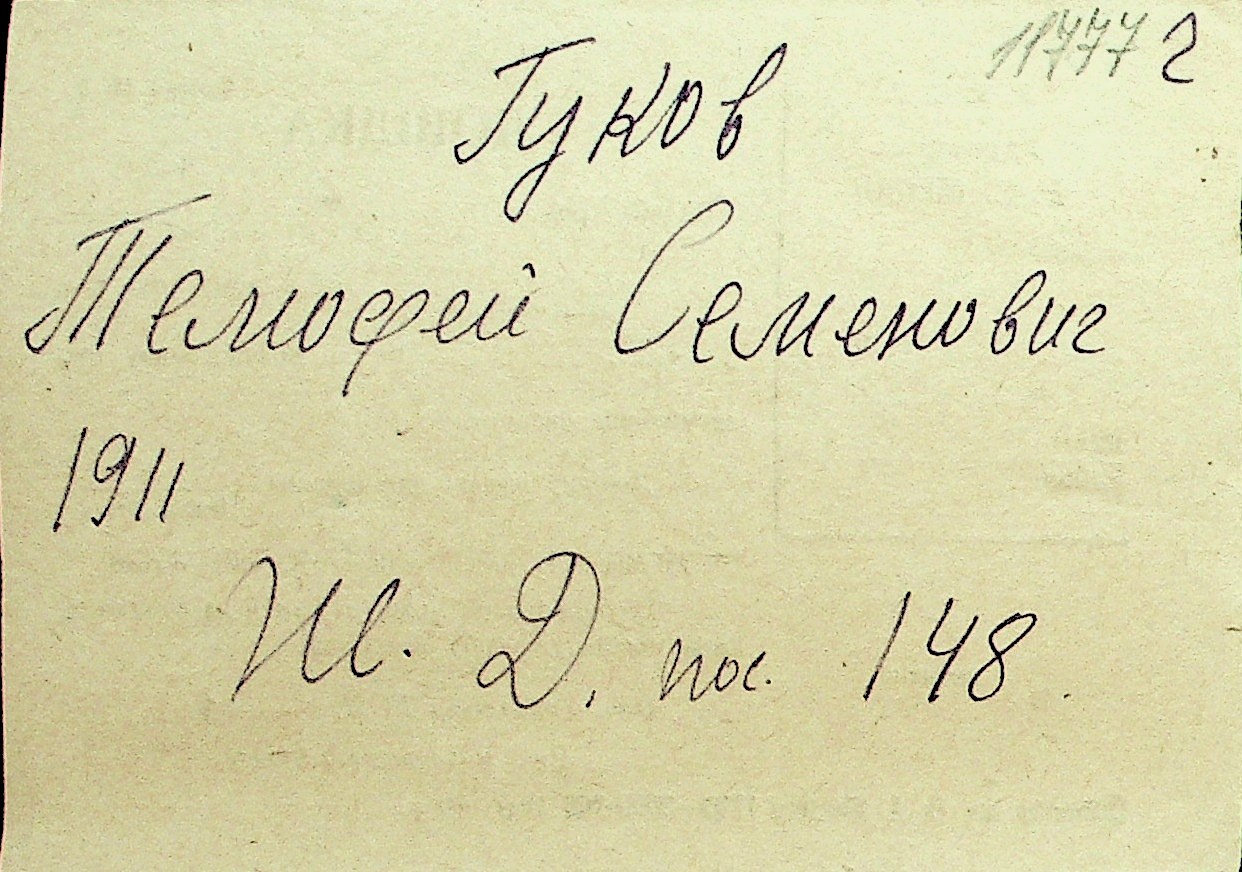 11777 г
Гуков
Темофей Семенович
1911
Ж. Д. пос. 148.